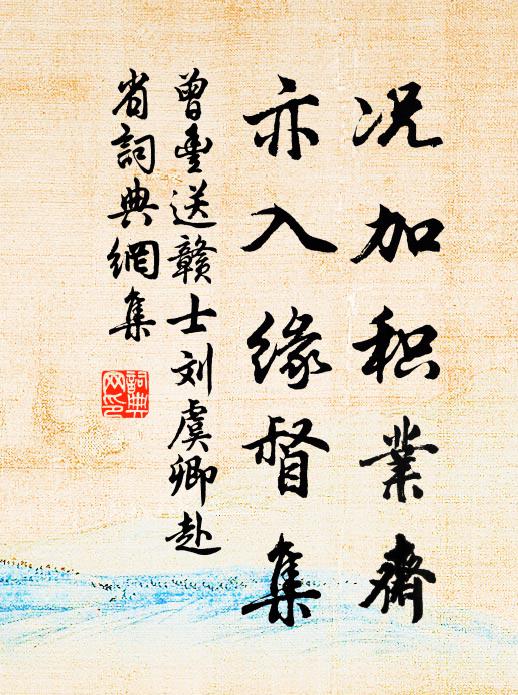 况加积業齋
亦入缘督集
曾豊送赣士刘虞卿赴
省詞典網集
詞典
网印